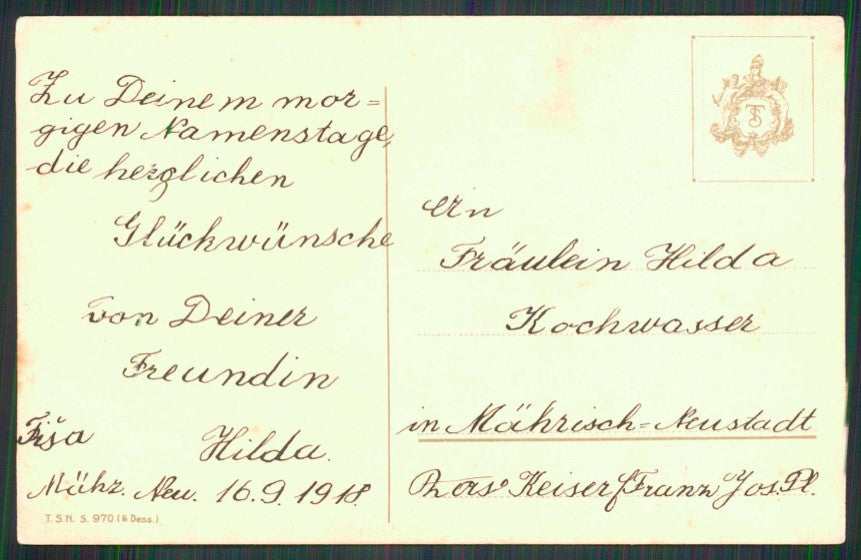 Zu Deinem mor=
gigen Namenstage,
die herzlichen
Glückwünsche
von Deiner
Freundin
Hilda.
Mähr. Neu. 16.9.1918.
T.S.N. S. 970 (6 Dess.)
TS
An
Fräulein Hilda
Kochwasser
in Mährisch=Neustadt
Keiser Franz Jos. Pl.